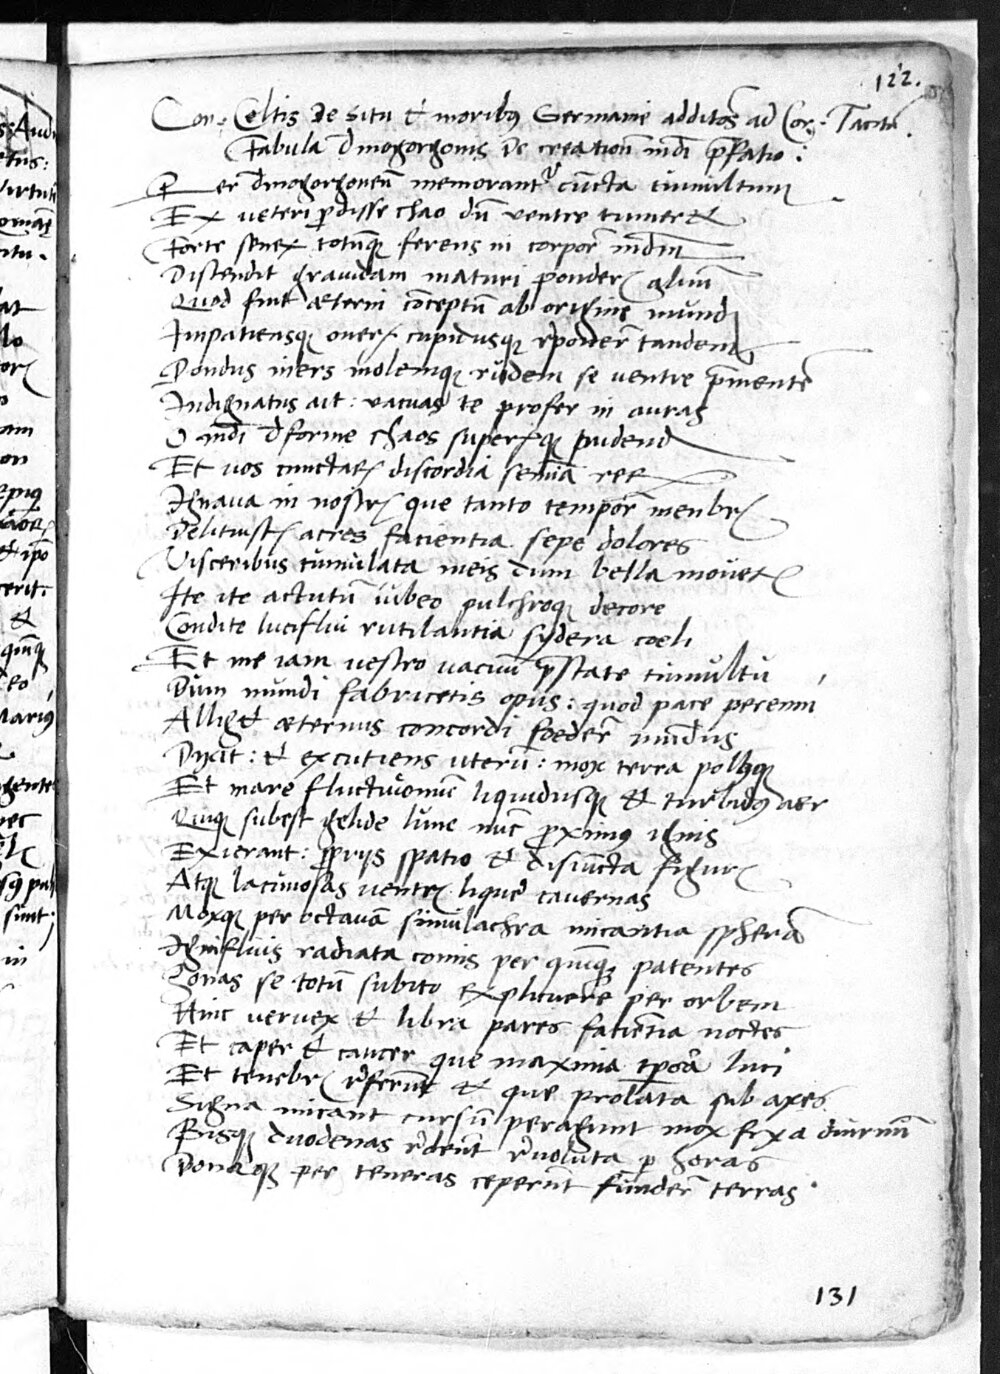 122.
Con. Celtis de situ et moribus Germanie additos ad Cor. Tacitu.
Fabula dmogorgonis De creatione mdi pfatio :
Per dmogorgonem memorant cuncta tumultum
Ex veteri pdisse chao dum ventre tumeret
Forte senex totumque ferens in corpore mdm
Distendit gravidam maturi pondere alvum
Quod fuit æterni conceptum ab origine mundi
Impatiensque oneris cupidusque reponere tandem
Pondus iners molemque rudem se ventre prementem
Indignatus ait: vacuas te profer in auras
O mdi dforme chaos superisque pudend
Et vos cunctar discordia semina rer
Ignava in nostris que tanto tempore menbris
Delituistis acres facientia sepe dolores
Visceribus tumulata meis dum bella movetis
Ite ite actutum iubeo pulchroque decore
Condite luciflui rutilantia sydera coeli
Et me iam vestro vacuum pstate tumultu
Dum mundi fabricetis opus: quod pace perenni
Alliget æternus concordi foedere mundus
Dixit: et excutiens uterum: mox terra polusque
Et mare fluctivomum liquidusque et turbidus aer
Quique subest gelide lune nunc proximus ignis
Exierant: proprijs spatio et disiuncta figuris
Atque lacunosas ventris liquere cavernas
Moxque per octavam simulachra micantia spheram
Ignifluis radiata comis per quinque patentes
Zonas se totum subito explicuere per orbem
Hinc vervex et libra pares facientia noctes
Et caper et cancer que maxima tpora luci
Et tenebris referunt et que prolata sub axes
Signa micant cursum peragunt mox fixa diurnum
Bisque duodenas redeunt revoluta per horas
Donaque per teneras ceperunt fundere terras
131